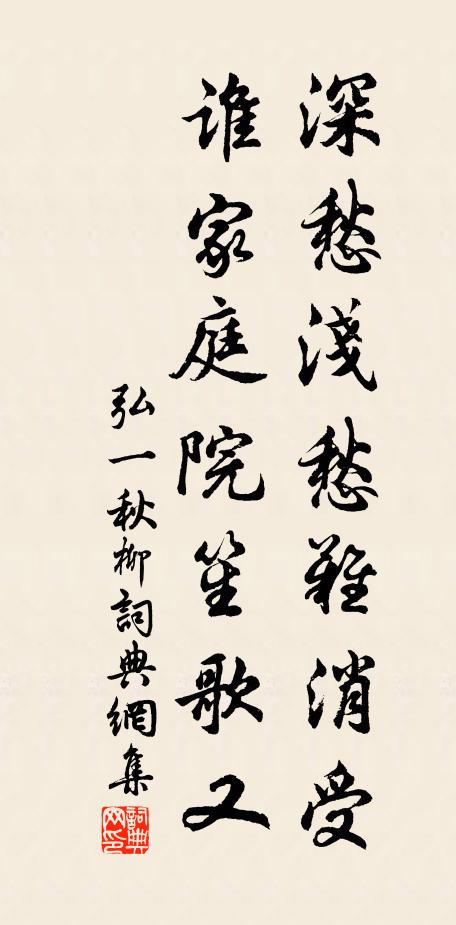 深愁淺愁難消受
誰家庭院笙歌又
弘一秋柳詞典網集
詞典網印